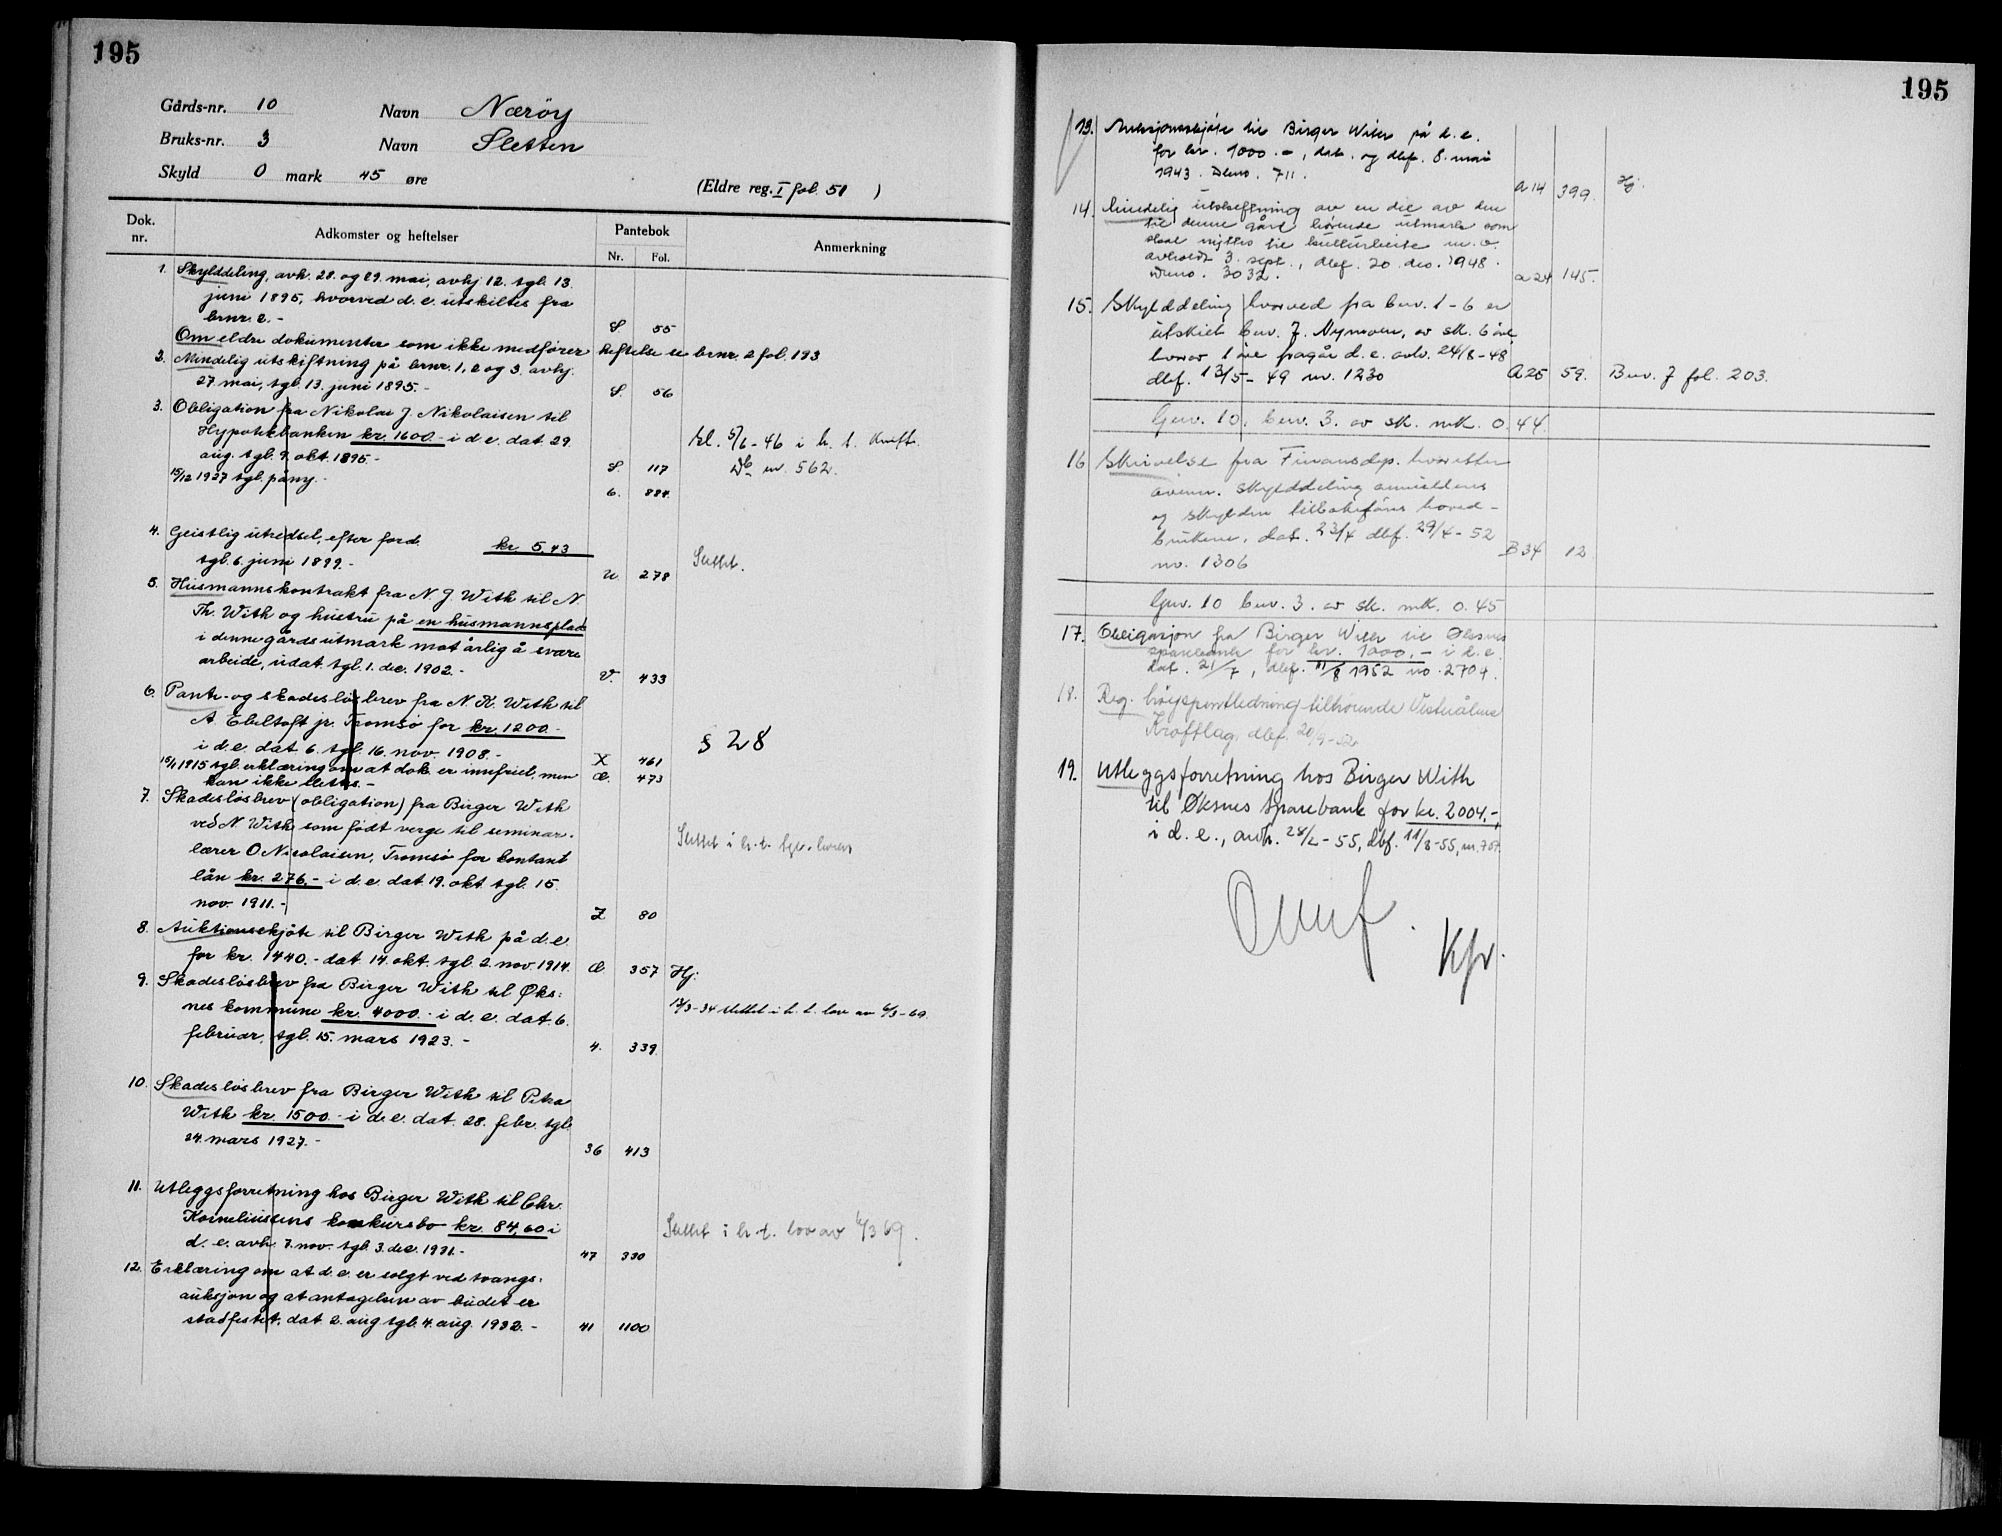 195
Gårds-nr. 10 Navn Nærøy
Bruks-nr. 3 Navn Sletten
Skyld 0 mark 45 øre
(Eldre reg. I fol. 51 )
Dok. nr. Adkomster og heftelser Pantebok Nr. Fol. Anmerkning
1. Skylddeling, avh. 28. og 29. mai, avhj 12. tgl. 13.
juni 1895, hvorved d. e. utskiltes fra
brnr. 2. - S 55
Om eldre dokumenter som ikke medfører heftelse se brnr. 2 fol. 193
2. Mindelig utskiftning på brnr. 1, 2 og 3. avhj.
27. mai, tgl. 13. juni 1895. - S. 56
3. Obligation fra Nikolai J. Nikolaisen til
Hypotekbanken kr. 1600.- i d e. dat. 29. Sl. 5/6-46 i h. t. kvitt.
aug. tgl. 9. okt. 1895. - S. 117 Db nr. 562.
15/12 1927 tgl. påny. - 6. 884.
4. Geistlig utredsel, efter ford. kr. 5,43
tgl. 6. juni 1899. - U. 278 Slettet.
5. Husmannskontrakt fra N. J. With til N.
Th. With og hustru på en husmannsplads
i denne gårds utmark mot årlig å svare
arbeide, udat. tgl. 1. dec. 1902. - V. 433
6. Pante- og skadesløsbrev fra N. K. With til
A. Ebeltoft jr. Tromsø for kr. 1200.-
i d. e. dat. 6. tgl. 16. nov. 1908. - X 461 § 28
15/1 1915 tgl. erklæring om at dok. er innfriet, men Æ. 473
kan ikke slettes. -
7. Skadesløsbrev (obligation) fra Birger With
ved N. With som født verge til seminar-
lærer O Nicolaisen, Tromsø for kontant Slettet i h. t. tgl. loven
lån kr. 276.- i d. e. dat. 19. okt. tgl. 15.
nov. 1911. - Z 80
8. Auktionsskjøte til Birger With på d. e.
for kr. 1440.- dat. 14. okt. tgl. 2. nov. 1914. Æ 357 Hj.
9. Skadesløsbrev fra Birger With til Øks-
nes kommune kr. 4000.- i d. e. dat. 6. 17/3-34 slettet i h. t. lov av 6/3-69.
februar, tgl. 15. mars 1923. - 4. 339.
10. Skadesløsbrev fra Birger With til Petra
With kr. 1500.- i d. e. dat. 28. febr. tgl.
24. mars 1927. - 36 413
11. Utleggsforretning hos Birger With til Chr.
Korneliussens konkursbo kr. 84,60 i Slettet i h. t. lov av 6/3 69.
d. e. avh. 7. nov. tgl. 3. dec. 1931. - 47 330
12. Erklæring om at d. e. er solgt ved tvangs-
auksjon og at antagelsen av budet er
stadfestet, dat. 2. aug tgl. 4. aug. 1932. - 41 1100
195
13. Auksjonsskjøte til Birger With på d. e.
for kr. 1000.-, dat. og dbf. 8. mai
1943. Dbno. 711. A 14 399. Hj.
14. Mindelig utskiftning av en del av den
til denne gård hørende utmark som
skal nyttes til kulturbeite m. v.
avholdt 3. sept., dbf. 20. des. 1948.
Dbno. 3032. A 24 145.
15. Skylddeling hvorved fra bnr. 1-6 er
utskilt bnr. 7. Nymoen, av sk. 6 øre
hvorav 1 øre fragår d. e. avh. 24/8-48
dbf. 13/5-49 nr. 1230 A 25 59. Bnr. 7 fol. 203.
Gnr. 10, bnr. 3. av sk. mk. 0.44.
16 Skrivelse fra Finansdep. hvoretter
ovenn. skylddeling annulleres
og skylden tilbakeføres hoved-
brukene, dat. 23/4 dbf. 29/4-52
nr. 1306 B 34 12
Gnr. 10 bnr. 3. av sk. mk. 0.45
17. Obligasjon fra Birger With til Øksnes
sparebank for kr. 1000,- i d. e.
dat. 21/7, dbf. 11/8 1952 no. 2704.
18. Reg. høyspentledning tilhørende Vesterålens
Kraftlag, dbf. 20/9-52
19. Utleggsforretning hos Birger With
til Øksnes Sparebank for kr. 2004,-,
i d. e., avh. 28/2-55, dbf. 11/3-55, nr. 707.
Omf.
Kfr.